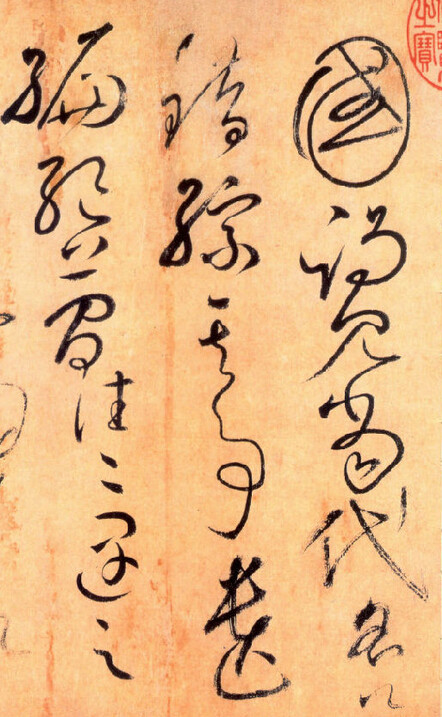 國謁見當代名公
錯綜其事遺
編絕簡往〻遇之